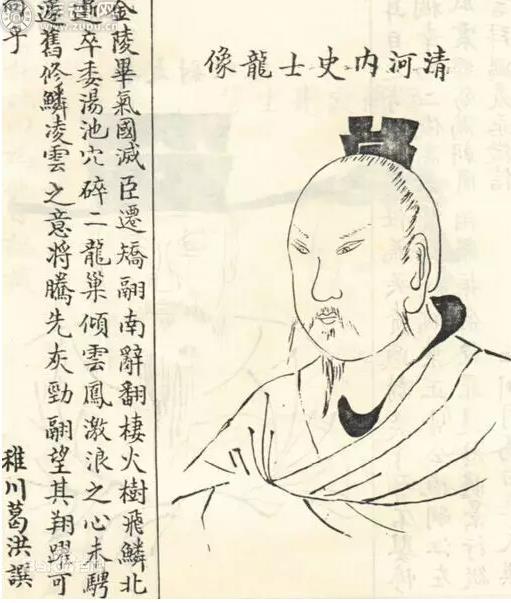 清河内史士龍像
金陵畢氣國滅臣遷矯翮南辭翻棲火樹飛鱗北
逝卒委湯池穴碎二龍巢傾雲鳳激浪之心未騁
修鱗凌雲之意將騰先灰勁翮望其翔躍可
稚川葛洪譔